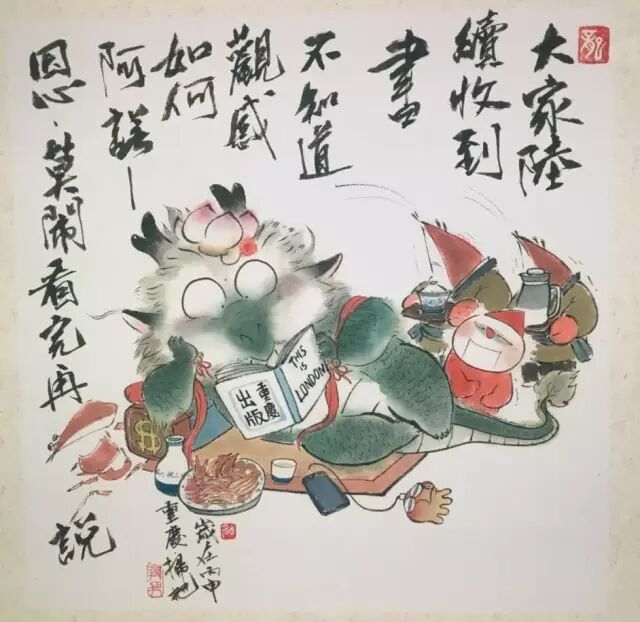 大家陸
續收到
書
不知道
觀感
如何
阿諾—
恩心·莫鬧看完再說
THIS
IS
LONDON
重慶
出版
歲在丙申
重慶